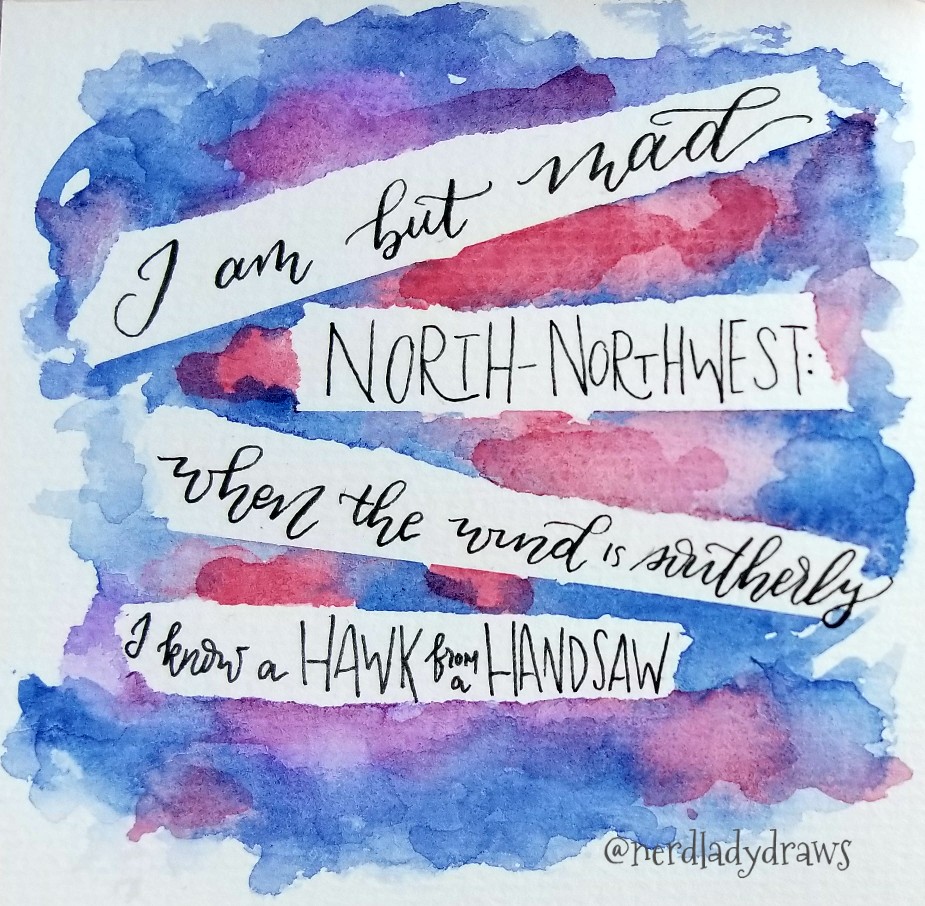 I am but mad
NORTH-NORTHWEST:
when the wind is southerly
I know a HAWK from a HANDSAW
@nerdladydraws